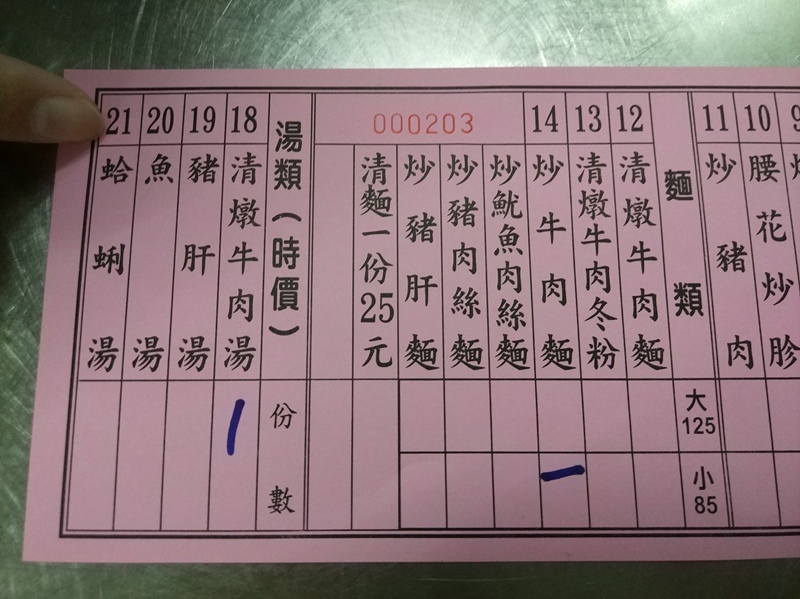 9
10
腰花炒胗
11
炒豬肉
麵類
大
125
小
85
12
清燉牛肉麵
13
清燉牛肉冬粉
14
炒牛肉麵
一
炒魷魚肉絲麵
炒豬肉絲麵
炒豬肝麵
清麵一份25元
000203
湯類(時價)
份數
18
清燉牛肉湯
1
19
豬肝湯
20
魚湯
21
蛤蜊湯